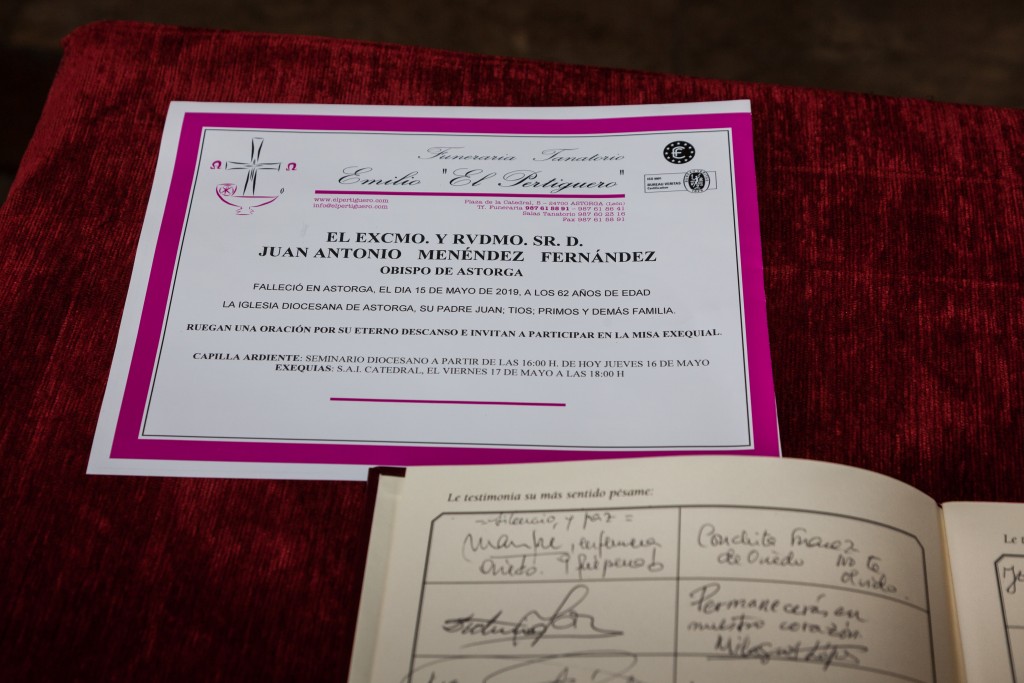 Funeraria Tanatorio
Emilio "El Pertiguero"
www.elpertiguero.com
info@elpertiguero.com
Plaza de la Catedral, 5 - 24700 ASTORGA (León)
Tf. Funeraria 987 61 58 91 - 987 61 56 41
Salas Tanatorio 987 60 23 16
Fax 987 61 58 91
EL EXCMO. Y RVDMO. SR. D.
JUAN ANTONIO MENÉNDEZ FERNÁNDEZ
OBISPO DE ASTORGA
FALLECIÓ EN ASTORGA, EL DIA 15 DE MAYO DE 2019, A LOS 62 AÑOS DE EDAD
LA IGLESIA DIOCESANA DE ASTORGA, SU PADRE JUAN; TIOS; PRIMOS Y DEMÁS FAMILIA.
RUEGAN UNA ORACIÓN POR SU ETERNO DESCANSO E INVITAN A PARTICIPAR EN LA MISA EXEQUIAL.
CAPILLA ARDIENTE: SEMINARIO DIOCESANO A PARTIR DE LAS 16:00 H. DE HOY JUEVES 16 DE MAYO
EXEQUIAS: S.A.I. CATEDRAL, EL VIERNES 17 DE MAYO A LAS 18:00 H
Le testimonia su más sentido pésame:
silencio, y paz =
enfermera
Oviedo.
Conchita
de Oviedo No te
olvido.
Permanecerás en
nuestro corazón.
Milagros
Le t